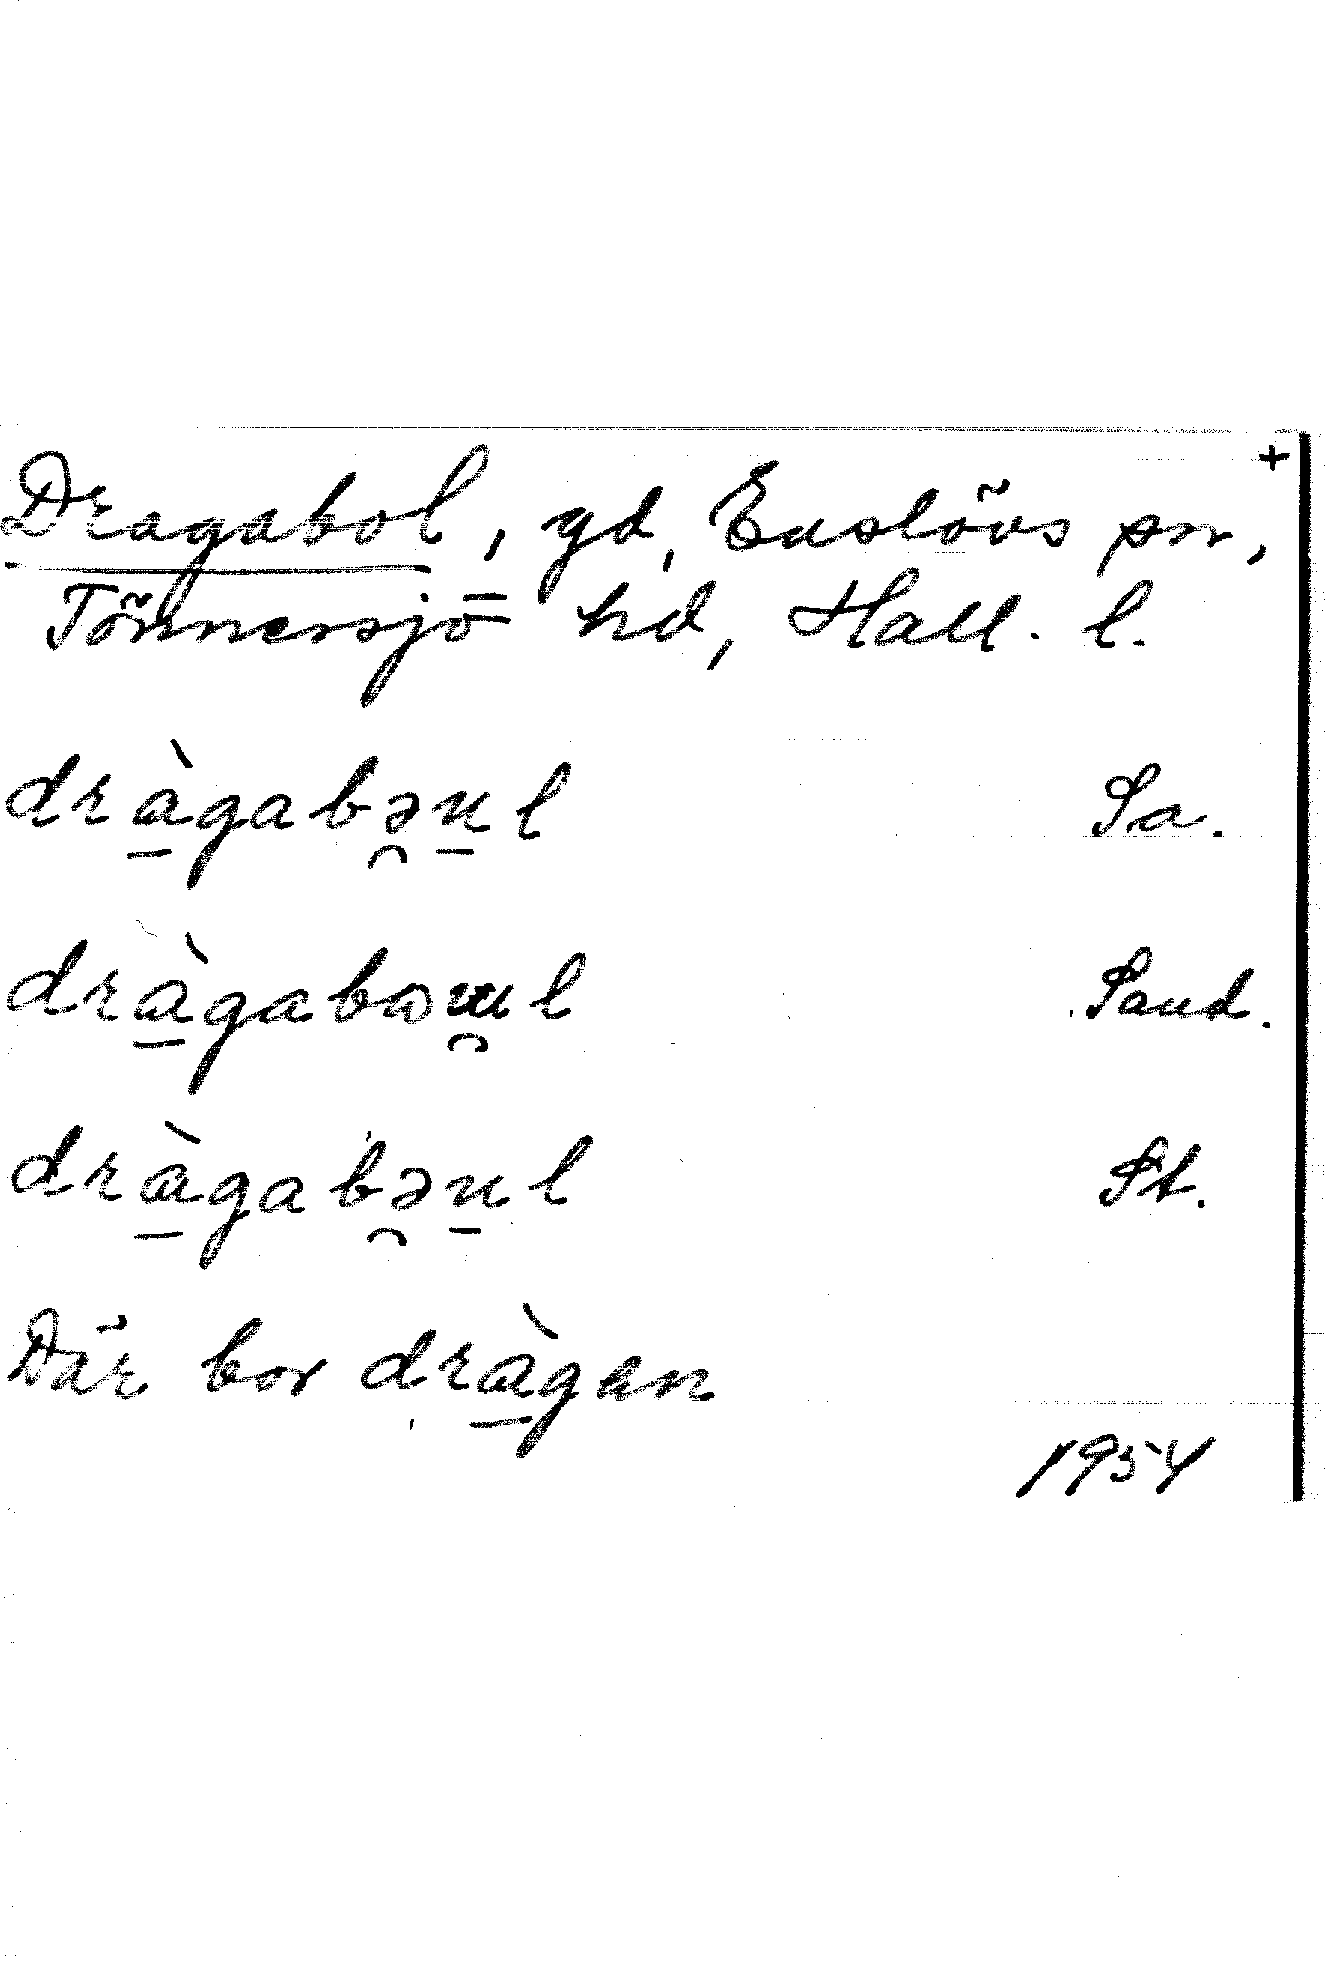 +
Dragabol, gd, Enslövs sn,
Tönnersjö hd, Hall. l.
dràgabəul Sa.
dràgabωul Sand.
dràgabəul St.
Där bor dràgen
1954